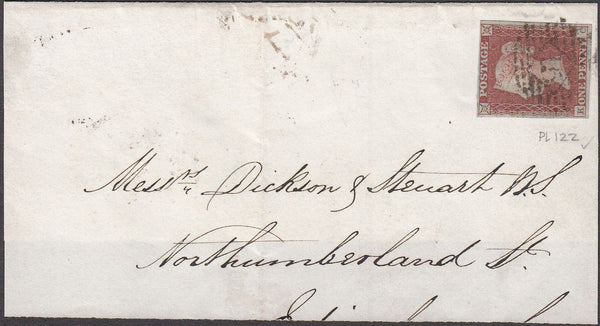 POSTAGE
ONE PENNY
PL 122
Messrs Dickson & Steuart W.S.
Northumberland St.
Edinburgh